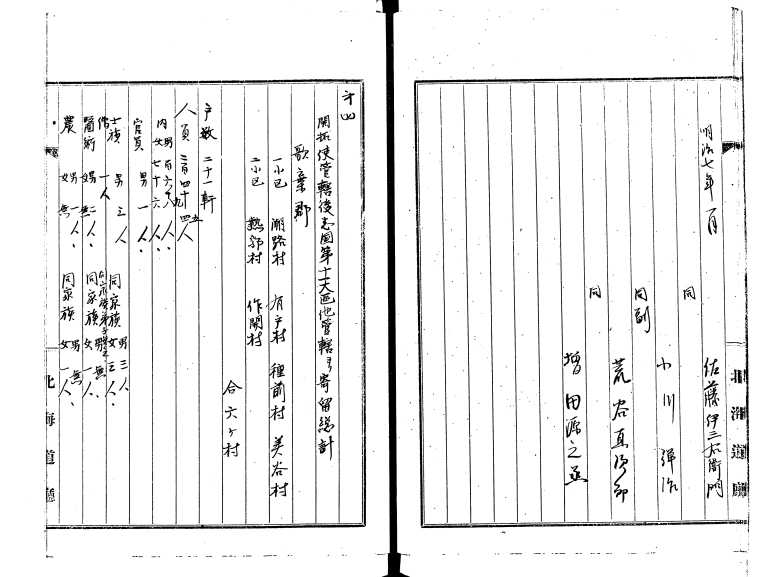 明治七年一月
佐藤伊三右衛門
同
小川弾治
同副
荒谷直次郎
同
増田源之丞
北海道廳
第四
開拓使管轄後志国第十一大区他管轄ヨリ寄留総計
歌棄郡
一小区 潮路村 有戸村 種前村 美谷村
二小区 熱郛村 作開村
合六ヶ村
戸数 二十一軒
人員
内 男
女 七十六人
官員 男 一人
士族 男 三人 同家族 男 三人 女 三人
僧 一人
醫術 男 二人 女 無 同家族 男 無 女 一人
農 男 一人 女 無 同家族 男 無 女 一人
北海道廳